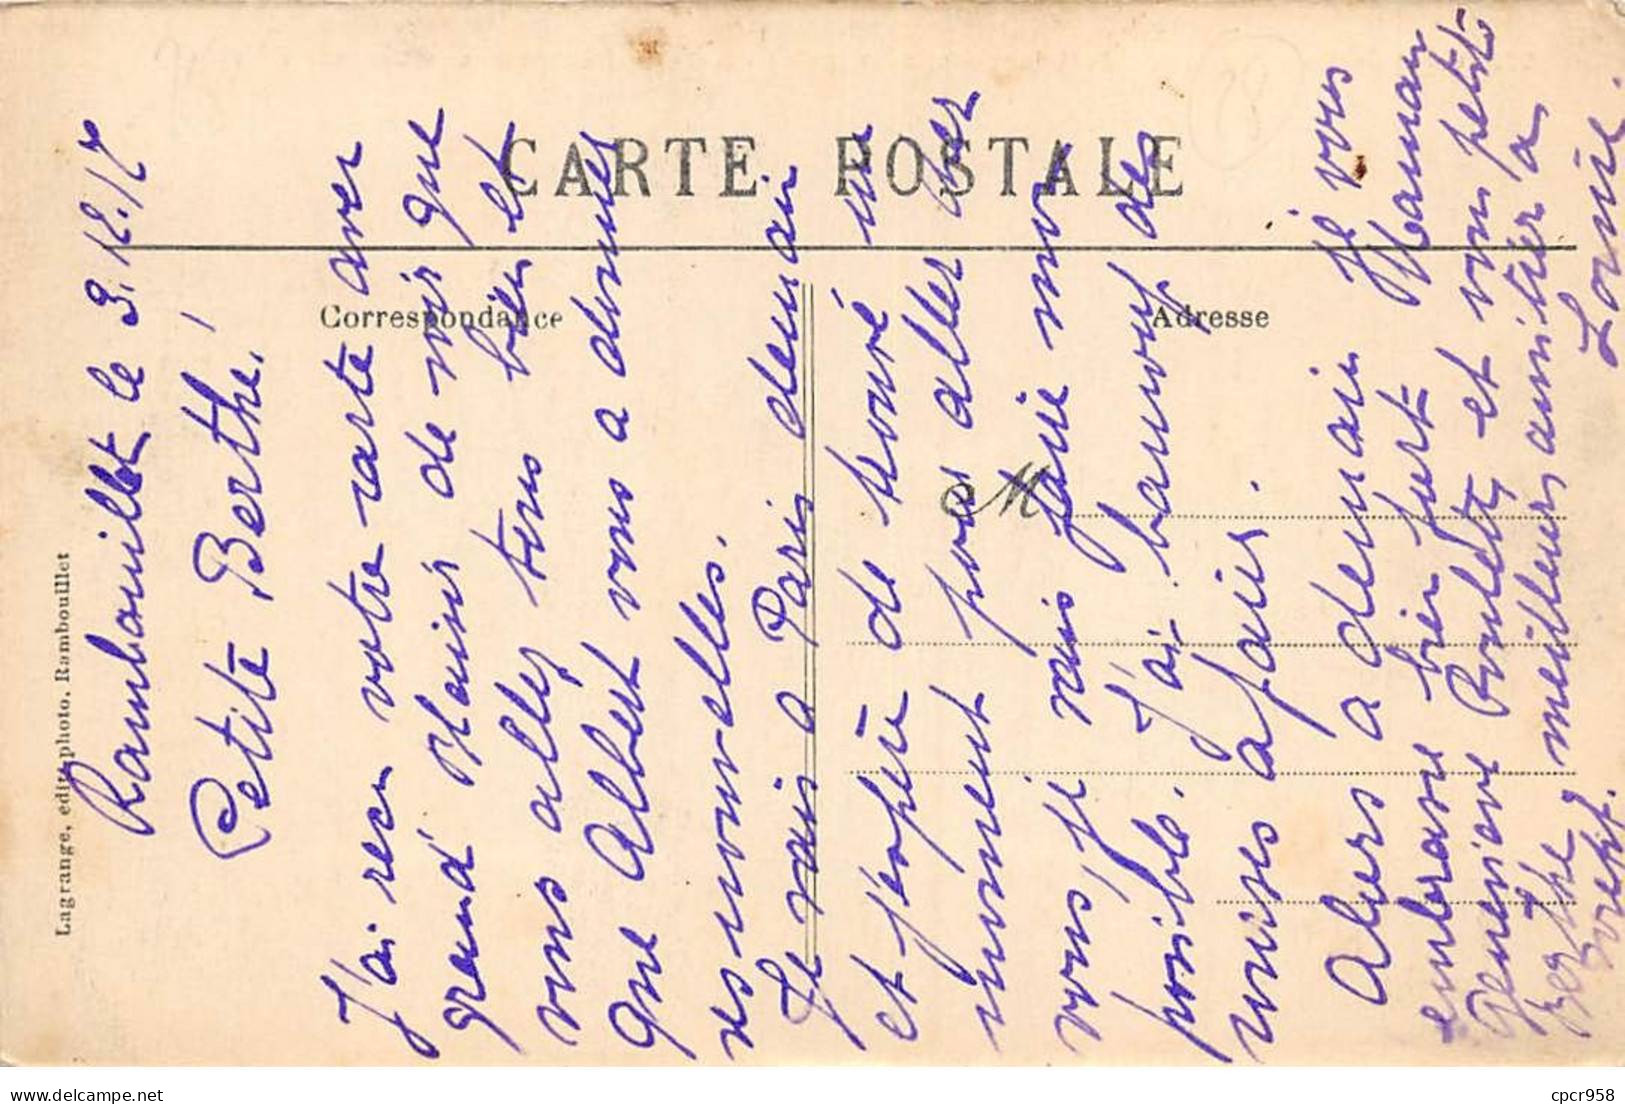 CARTE POSTALE
Correspondance
Adresse
M
Lagrange, edit. photo. Rambouillet
Rambouillet le 3.12.17
Petite Berthe!
J'ai recu votre carte avec
grand plaisir de voir que
vous allez tous bien et
que Albert vous a donner
des nouvelles.
Je vais a Paris demain
et j'espère de trouvé un
moment pour aller chez
vous, je vais faire mon
possible. J'ai baucoup des
a faire.
Alors a demain Je vous
embrasse bien fort Maman
et vous petite
Berthe meilleurs amitier a
Louise.
cpcr958